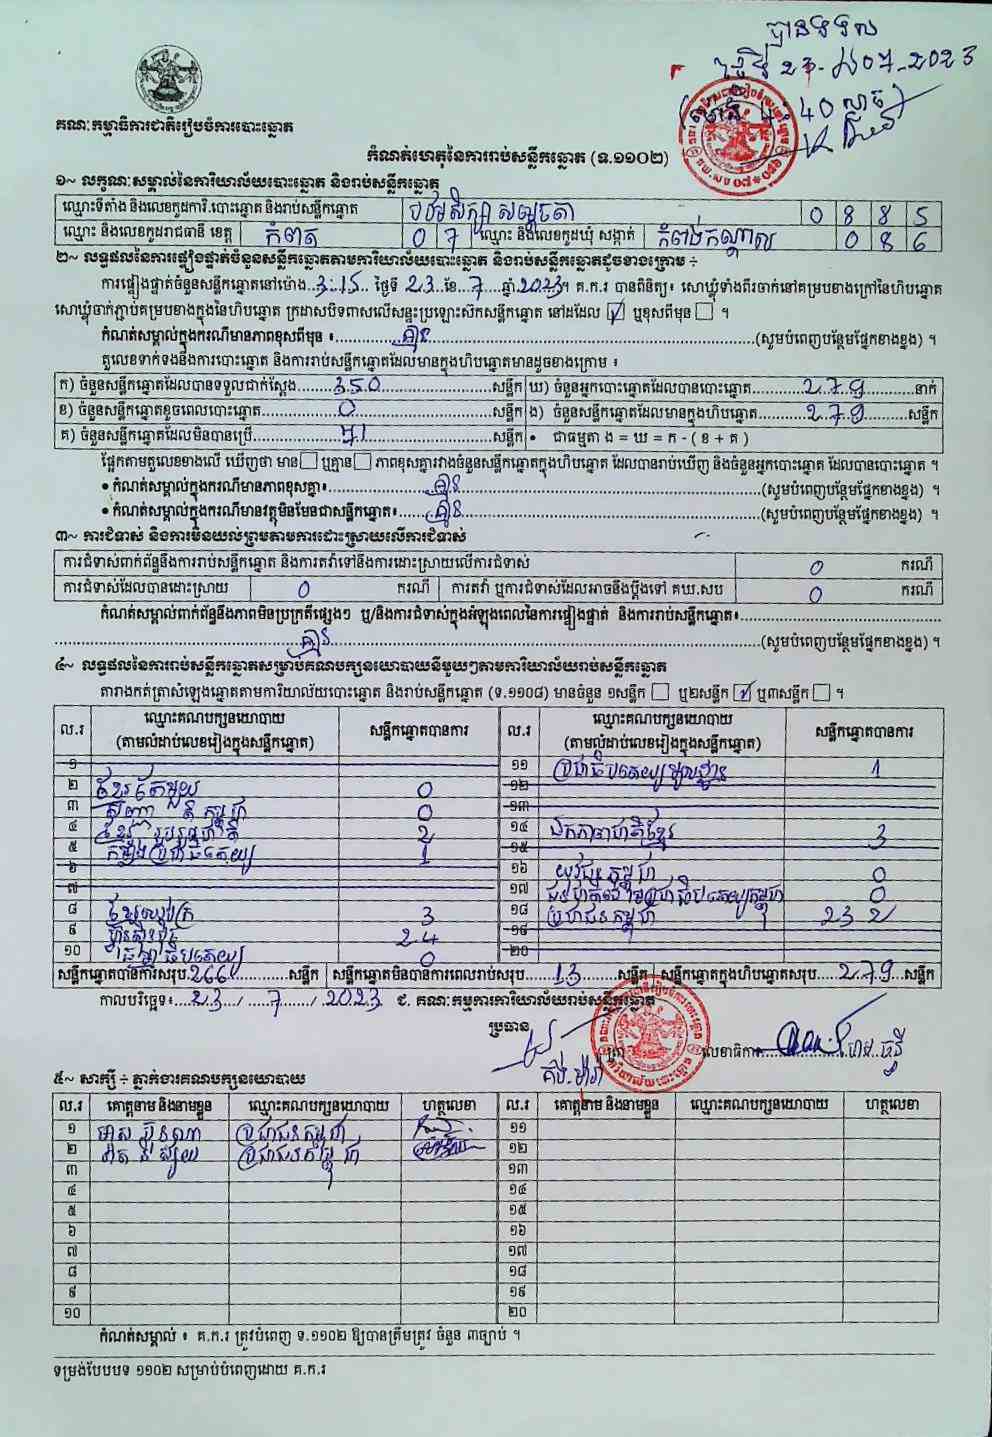 បានទទួល
ថ្ងៃទី 23-ខែ07-2023
ម៉ោង 4 40 ល្ងាច
គណៈកម្មាធិការជាតិរៀបចំការបោះឆ្នោត
កំណត់ហេតុនៃការរាប់សន្លឹកឆ្នោត (ទ.១១០២)
១~ លក្ខណៈសម្គាល់នៃការិយាល័យបោះឆ្នោត និងរាប់សន្លឹកឆ្នោត
ឈ្មោះទីតាំង និងលេខកូដការិ.បោះឆ្នោត និងរាប់សន្លឹកឆ្នោត បឋមសិក្សា សម្តេចតា 0 8 8 5
ឈ្មោះ និងលេខកូដរាជធានី ខេត្ត កំពត 0 7 ឈ្មោះ និងលេខកូដឃុំ សង្កាត់ កំពង់កណ្តាល 0 8 6
២~ លទ្ធផលនៃការផ្ទៀងផ្ទាត់ចំនួនសន្លឹកឆ្នោតតាមការិយាល័យបោះឆ្នោត និងរាប់សន្លឹកឆ្នោតដូចខាងក្រោម ÷
ការផ្ទៀងផ្ទាត់ចំនួនសន្លឹកឆ្នោតនៅម៉ោង..3:15.. ថ្ងៃទី 23 ខែ 7 ឆ្នាំ 2023។ គ.ក.រ បានពិនិត្យ៖ សោឃ្លុំទាំងពីរចាក់នៅគម្របខាងក្រៅនៃហិបឆ្នោត
សោឃ្លុំចាក់ភ្ជាប់គម្របខាងក្នុងនៃហិបឆ្នោត ក្រដាសបិទពាសលើសន្ទះប្រឡោះស៊កសន្លឹកឆ្នោត នៅដដែល ☑ ឬខុសពីមុន ☐ ។
កំណត់សម្គាល់ក្នុងករណីមានភាពខុសពីមុន ៖ គ្មាន (សូមបំពេញបន្ថែមផ្នែកខាងខ្នង) ។
តួលេខទាក់ទងនឹងការបោះឆ្នោត និងការរាប់សន្លឹកឆ្នោតដែលមានក្នុងហិបឆ្នោតមានដូចខាងក្រោម ៖
ក) ចំនួនសន្លឹកឆ្នោតដែលបានទទួលជាក់ស្តែង 350 សន្លឹក ឃ) ចំនួនអ្នកបោះឆ្នោតដែលបានបោះឆ្នោត 279 នាក់
ខ) ចំនួនសន្លឹកឆ្នោតខូចពេលបោះឆ្នោត 0 សន្លឹក ង) ចំនួនសន្លឹកឆ្នោតដែលមានក្នុងហិបឆ្នោត 279 សន្លឹក
គ) ចំនួនសន្លឹកឆ្នោតដែលមិនបានប្រើ 71 សន្លឹក • ជាធម្មតា ង = ឃ = ក - ( ខ + គ )
ផ្អែកតាមតួលេខខាងលើ ឃើញថា មាន ☐ ឬគ្មាន ☐ ភាពខុសគ្នារវាងចំនួនសន្លឹកឆ្នោតក្នុងហិបឆ្នោត ដែលបានរាប់ឃើញ និងចំនួនអ្នកបោះឆ្នោត ដែលបានបោះឆ្នោត ។
• កំណត់សម្គាល់ក្នុងករណីមានភាពខុសគ្នា៖ គ្មាន (សូមបំពេញបន្ថែមផ្នែកខាងខ្នង) ។
• កំណត់សម្គាល់ក្នុងករណីមានវត្ថុមិនមែនជាសន្លឹកឆ្នោត៖ គ្មាន (សូមបំពេញបន្ថែមផ្នែកខាងខ្នង) ។
៣~ ការជំទាស់ និងការមិនយល់ព្រមតាមការដោះស្រាយលើការជំទាស់
ការជំទាស់ពាក់ព័ន្ធនឹងការរាប់សន្លឹកឆ្នោត និងការតវ៉ាទៅនឹងការដោះស្រាយលើការជំទាស់ 0 ករណី
ការជំទាស់ដែលបានដោះស្រាយ 0 ករណី ការតវ៉ា ឬការជំទាស់ដែលអាចនឹងប្តឹងទៅ គឃ.សប 0 ករណី
កំណត់សម្គាល់ពាក់ព័ន្ធនឹងភាពមិនប្រក្រតីផ្សេងៗ ឬ/និងការជំទាស់ក្នុងអំឡុងពេលនៃការផ្ទៀងផ្ទាត់ និងការរាប់សន្លឹកឆ្នោត៖
គ្មាន (សូមបំពេញបន្ថែមផ្នែកខាងខ្នង) ។
៤~ លទ្ធផលនៃការរាប់សន្លឹកឆ្នោតសម្រាប់គណបក្សនយោបាយនីមួយៗតាមការិយាល័យរាប់សន្លឹកឆ្នោត
តារាងកត់ត្រាសំឡេងឆ្នោតតាមការិយាល័យបោះឆ្នោត និងរាប់សន្លឹកឆ្នោត (ទ.១១០៨) មានចំនួន ១សន្លឹក ☐ ឬ២សន្លឹក ☑ ឬ៣សន្លឹក ☐ ។
ល.រ ឈ្មោះគណបក្សនយោបាយ (តាមលំដាប់លេខរៀងក្នុងសន្លឹកឆ្នោត) សន្លឹកឆ្នោតបានការ ល.រ ឈ្មោះគណបក្សនយោបាយ (តាមលំដាប់លេខរៀងក្នុងសន្លឹកឆ្នោត) សន្លឹកឆ្នោតបានការ
១ ១១ ប្រជាធិបតេយ្យមូលដ្ឋាន 1
២ ខ្មែរតែមួយ 0 ១២
៣ 0 ១៣
៤ ខ្មែររួបរួមជាតិ 2 ១៤ ឯកភាពជាតិខ្មែរ 3
៥ កសិករ ប្រជាធិបតេយ្យ 1 ១៥
៦ ១៦ យុវជនកម្ពុជា 0
៧ ១៧ 0
៨ 3 ១៨ ប្រជាជនកម្ពុជា 232
៩ ហ្វ៊ុនស៊ិនប៉ិច 24 ១៩
១០ ធម្មាធិបតេយ្យ 0 ២០
សន្លឹកឆ្នោតបានការសរុប 266 សន្លឹក សន្លឹកឆ្នោតមិនបានការពេលរាប់សរុប 13 សន្លឹក សន្លឹកឆ្នោតក្នុងហិបឆ្នោតសរុប 279 សន្លឹក
កាលបរិច្ឆេទ៖ 23 / 7 / 2023 ជ. គណៈកម្មការការិយាល័យរាប់សន្លឹកឆ្នោត
ប្រធាន
លេខាធិការ
៥~ សាក្សី ÷ ភ្នាក់ងារគណបក្សនយោបាយ
ល.រ គោត្តនាម និងនាមខ្លួន ឈ្មោះគណបក្សនយោបាយ ហត្ថលេខា ល.រ គោត្តនាម និងនាមខ្លួន ឈ្មោះគណបក្សនយោបាយ ហត្ថលេខា
១ ប្រជាជនកម្ពុជា ១១
២ ប្រជាជនកម្ពុជា ១២
៣ ១៣
៤ ១៤
៥ ១៥
៦ ១៦
៧ ១៧
៨ ១៨
៩ ១៩
១០ ២០
កំណត់សម្គាល់ ៖ គ.ក.រ ត្រូវបំពេញ ទ.១១០២ ឱ្យបានត្រឹមត្រូវ ចំនួន ៣ច្បាប់ ។
ទម្រង់បែបបទ ១១០២ សម្រាប់បំពេញដោយ គ.ក.រ